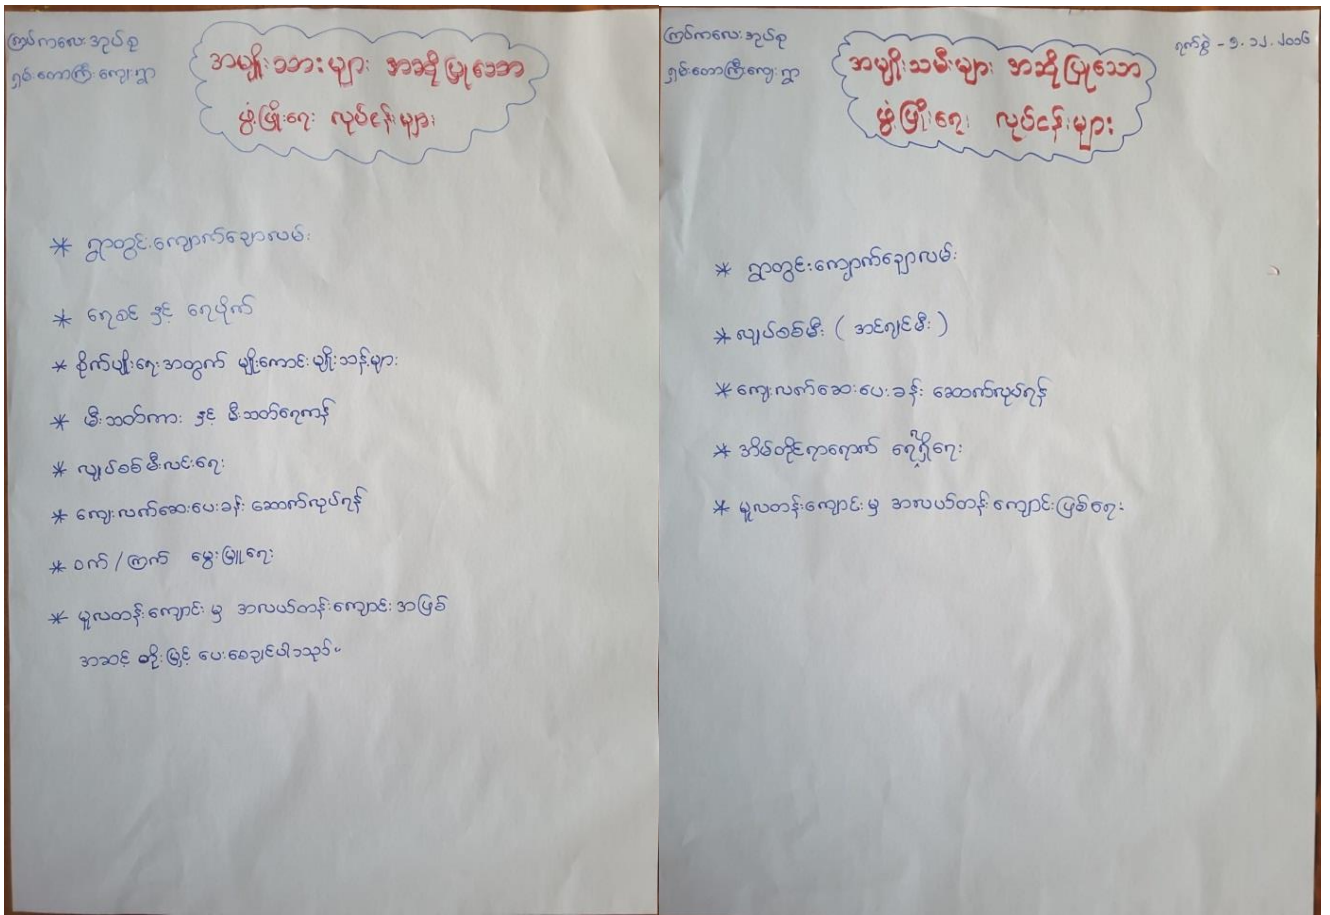 ကြပ်ကလေးအုပ်စု
ရှမ်းတောကြီးကျေးရွာ
အမျိုးသားများ အဆိုပြုသော
ဖွံ့ဖြိုးရေး လုပ်ငန်းများ
* ရွာတွင်းကျောက်ချောလမ်း
* ရေစင် နှင့် ရေပိုက်
* စိုက်ပျိုးရေးအတွက် မျိုးကောင်းမျိုးသန့်များ
* မီးသတ်ကား နှင့် မီးသတ်ရေကန်
* လျှပ်စစ်မီးလင်းရေး
* ကျေးလက်ဆေးပေးခန်း ဆောက်လုပ်ရန်
* ဝက်/ကြက် မွေးမြူရေး
* မူလတန်းကျောင်းမှ အလယ်တန်းကျောင်းအဖြစ်
အဆင့် တိုးမြှင့် ပေးစေချင်ပါသည်။
ကြပ်ကလေးအုပ်စု
ရှမ်းတောကြီးကျေးရွာ
အမျိုးသမီးများ အဆိုပြုသော
ဖွံ့ဖြိုးရေး လုပ်ငန်းများ
ရက်စွဲ - ၁.၁၂.၂၀၁၆
* ရွာတွင်းကျောက်ချောလမ်း
* လျှပ်စစ်မီး (အင်ဂျင်မီး)
* ကျေးလက်ဆေးပေးခန်း ဆောက်လုပ်ရန်
* အိမ်တိုင်ရာရောက် ရေရရှိရေး
* မူလတန်းကျောင်းမှ အလယ်တန်းကျောင်းဖြစ်ရေး